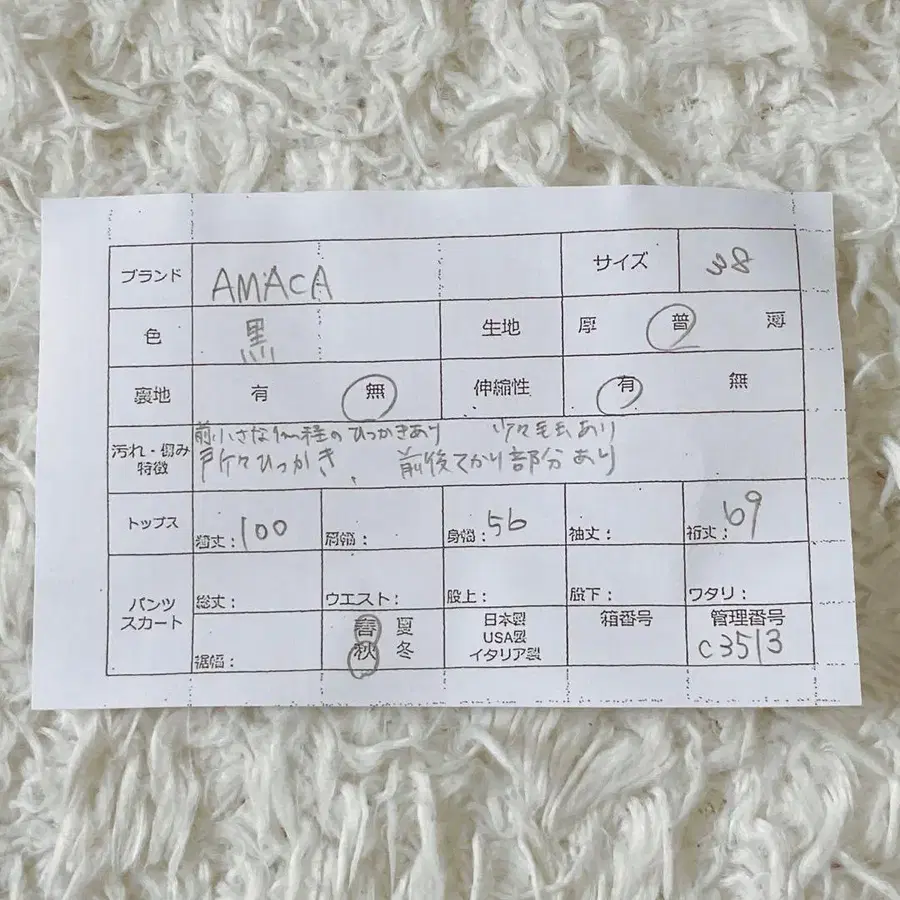 ブランド AMACA サイズ 38
色 黒 生地 厚 普 薄
裏地 有 無 伸縮性 有 無
汚れ・傷み
特徴
前小さな1cm程のひっかきあり 少々毛玉あり
所々ひっかき、 前後てかり部分あり
トップス 着丈:100 肩幅: 身幅:56 袖丈: 裄丈:69
パンツ
スカート
総丈: ウエスト: 股上: 股下: ワタリ:
裾幅:
春 夏
秋 冬
日本製
USA製
イタリア製
箱番号
管理番号
C3513